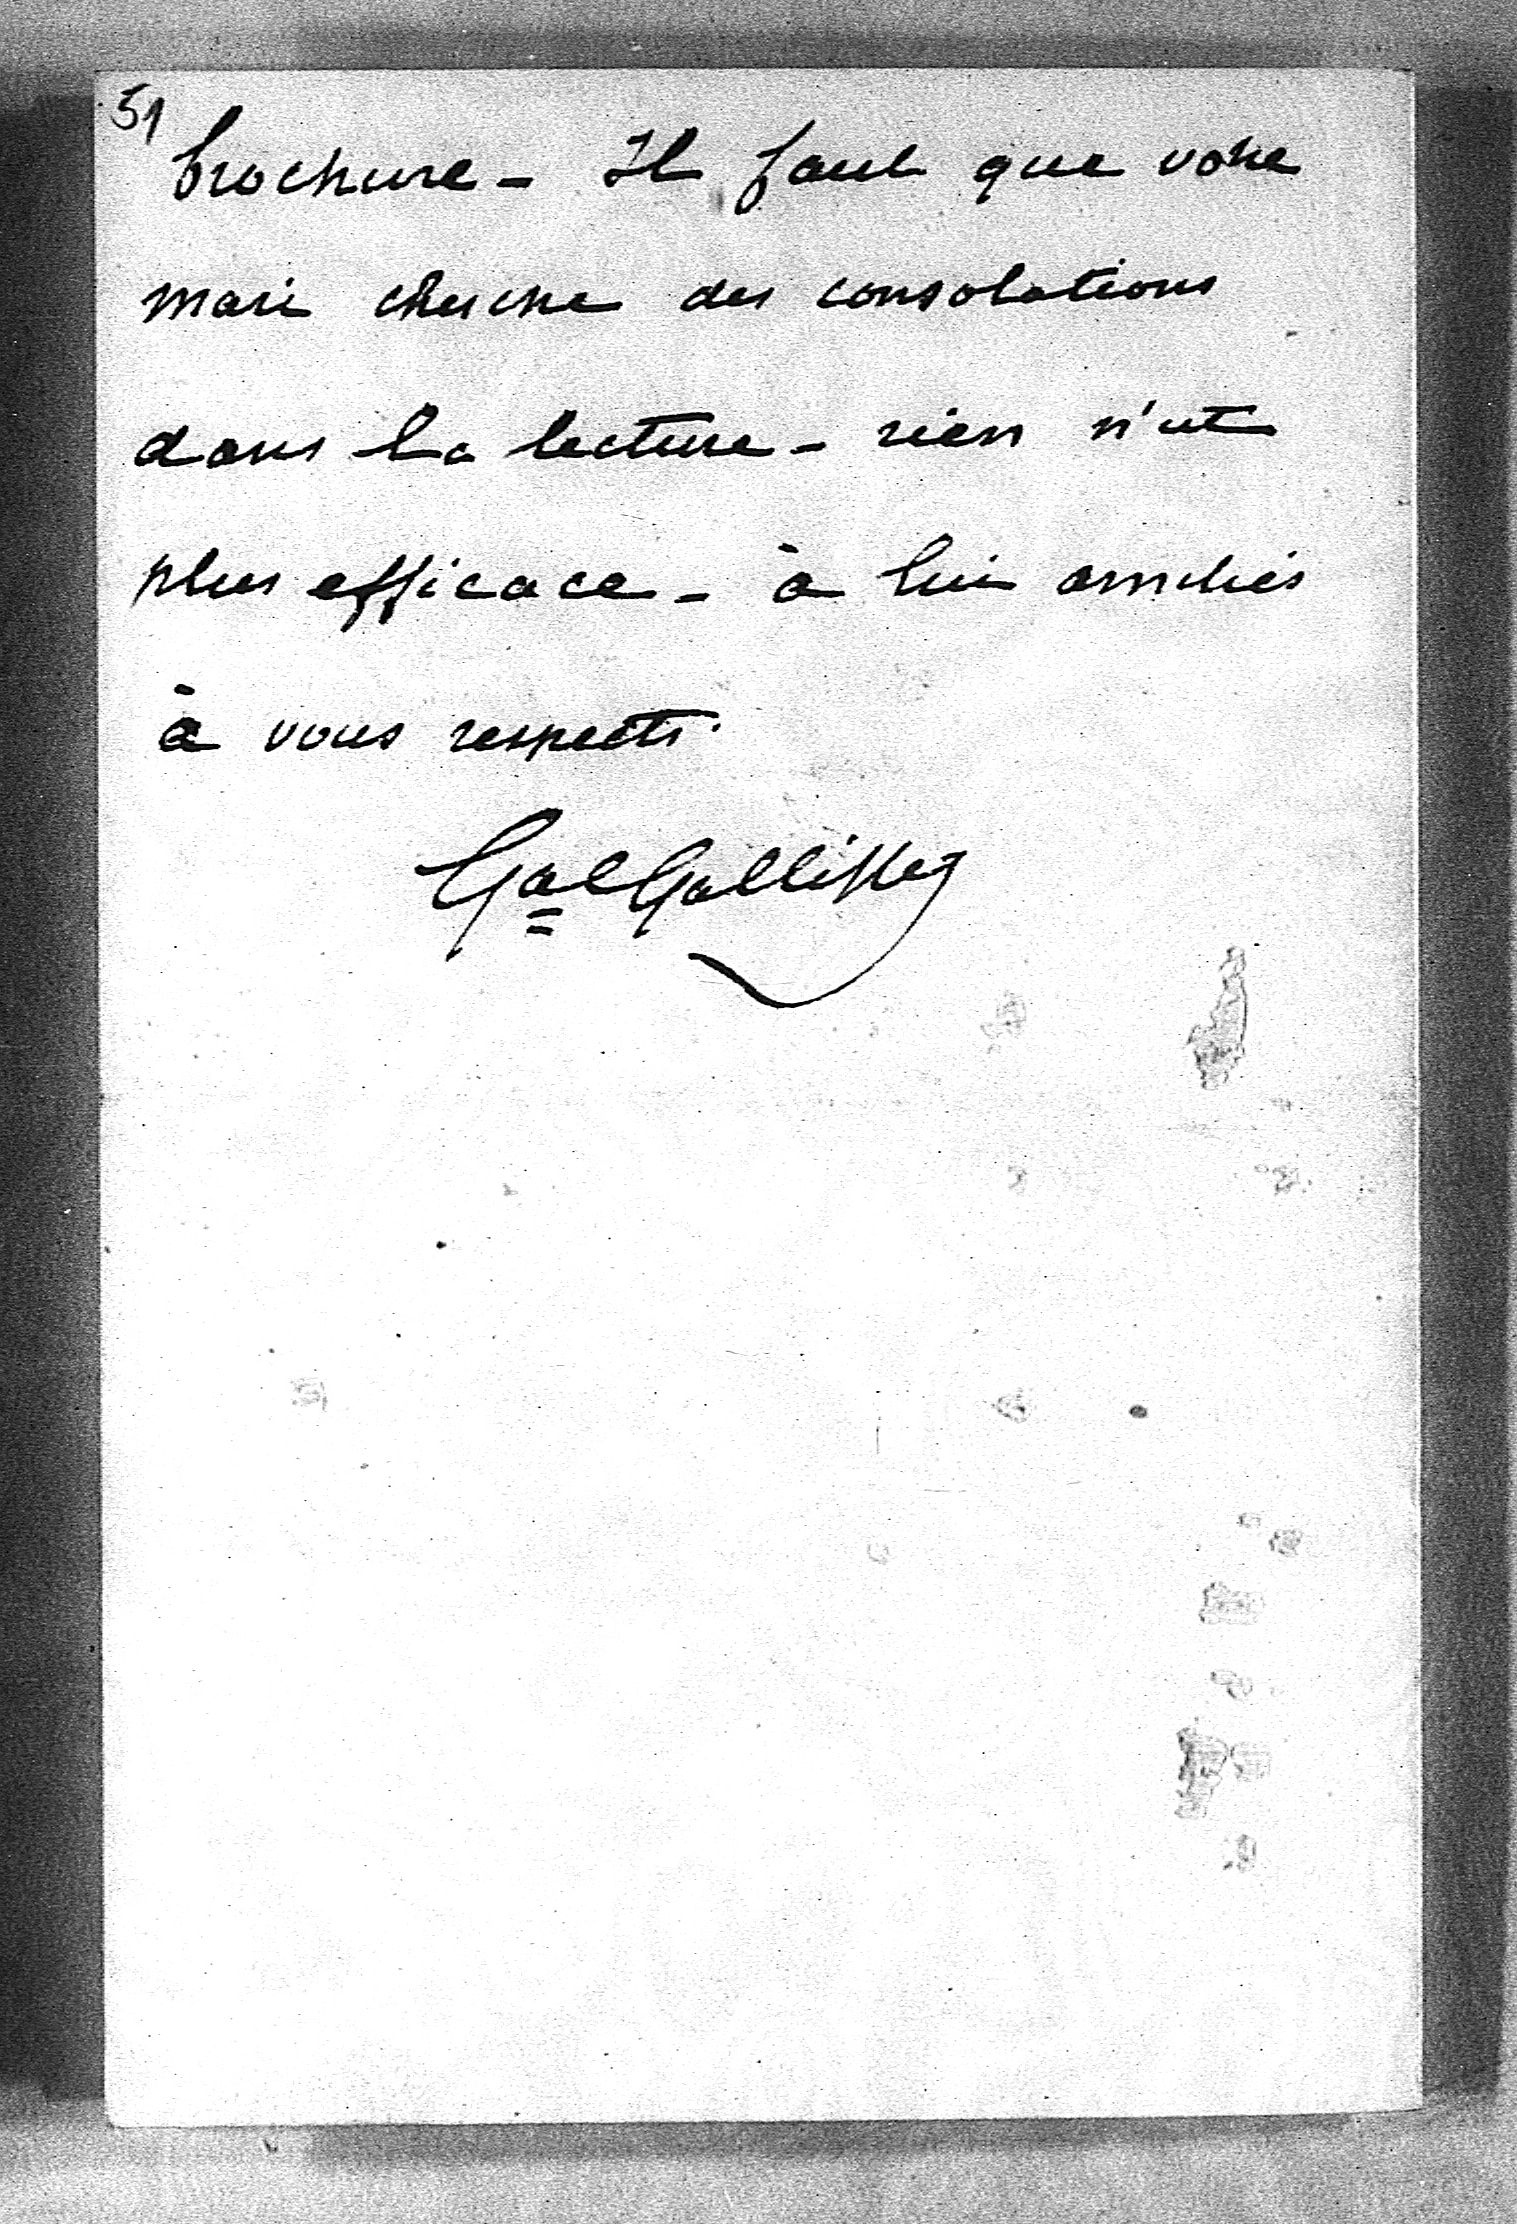 51
brochure - Il faut que votre
mari cherche des consolations
dans la lecture - rien n'est
plus efficace - à lui amitiés
à vous respects.
Gal Galliffet